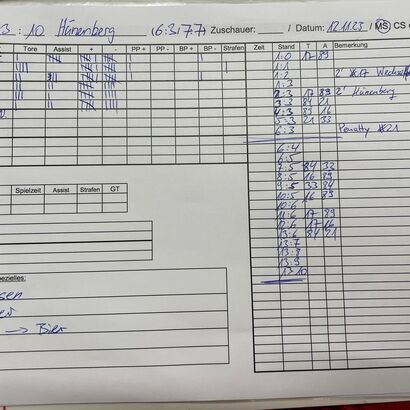 3 : 10 Hünenberg (6:3/7:7) Zuschauer: Datum: 12.11.23 MS CS
Tore Assist + - PP + PP - BP + BP - Strafen Zeit Stand T A Bemerkung
1:0 17 89
1:1
1:2 2' #17 Wechsel
1:3
2:3 17 89 2' Hünenberg
3:3 84 21
4:3 89 16
5:3 21 33
6:3 Penalty #21
6:4
6:5
7:5 84 32
8:5 16 89
9:5 33 84
10:5 16 89
10:6
11:6 17 89
12:6 17 16
13:6 84 21
13:7
13:8
13:9
13:10
Spielzeit Assist Strafen GT
pezielles:
→ Bier